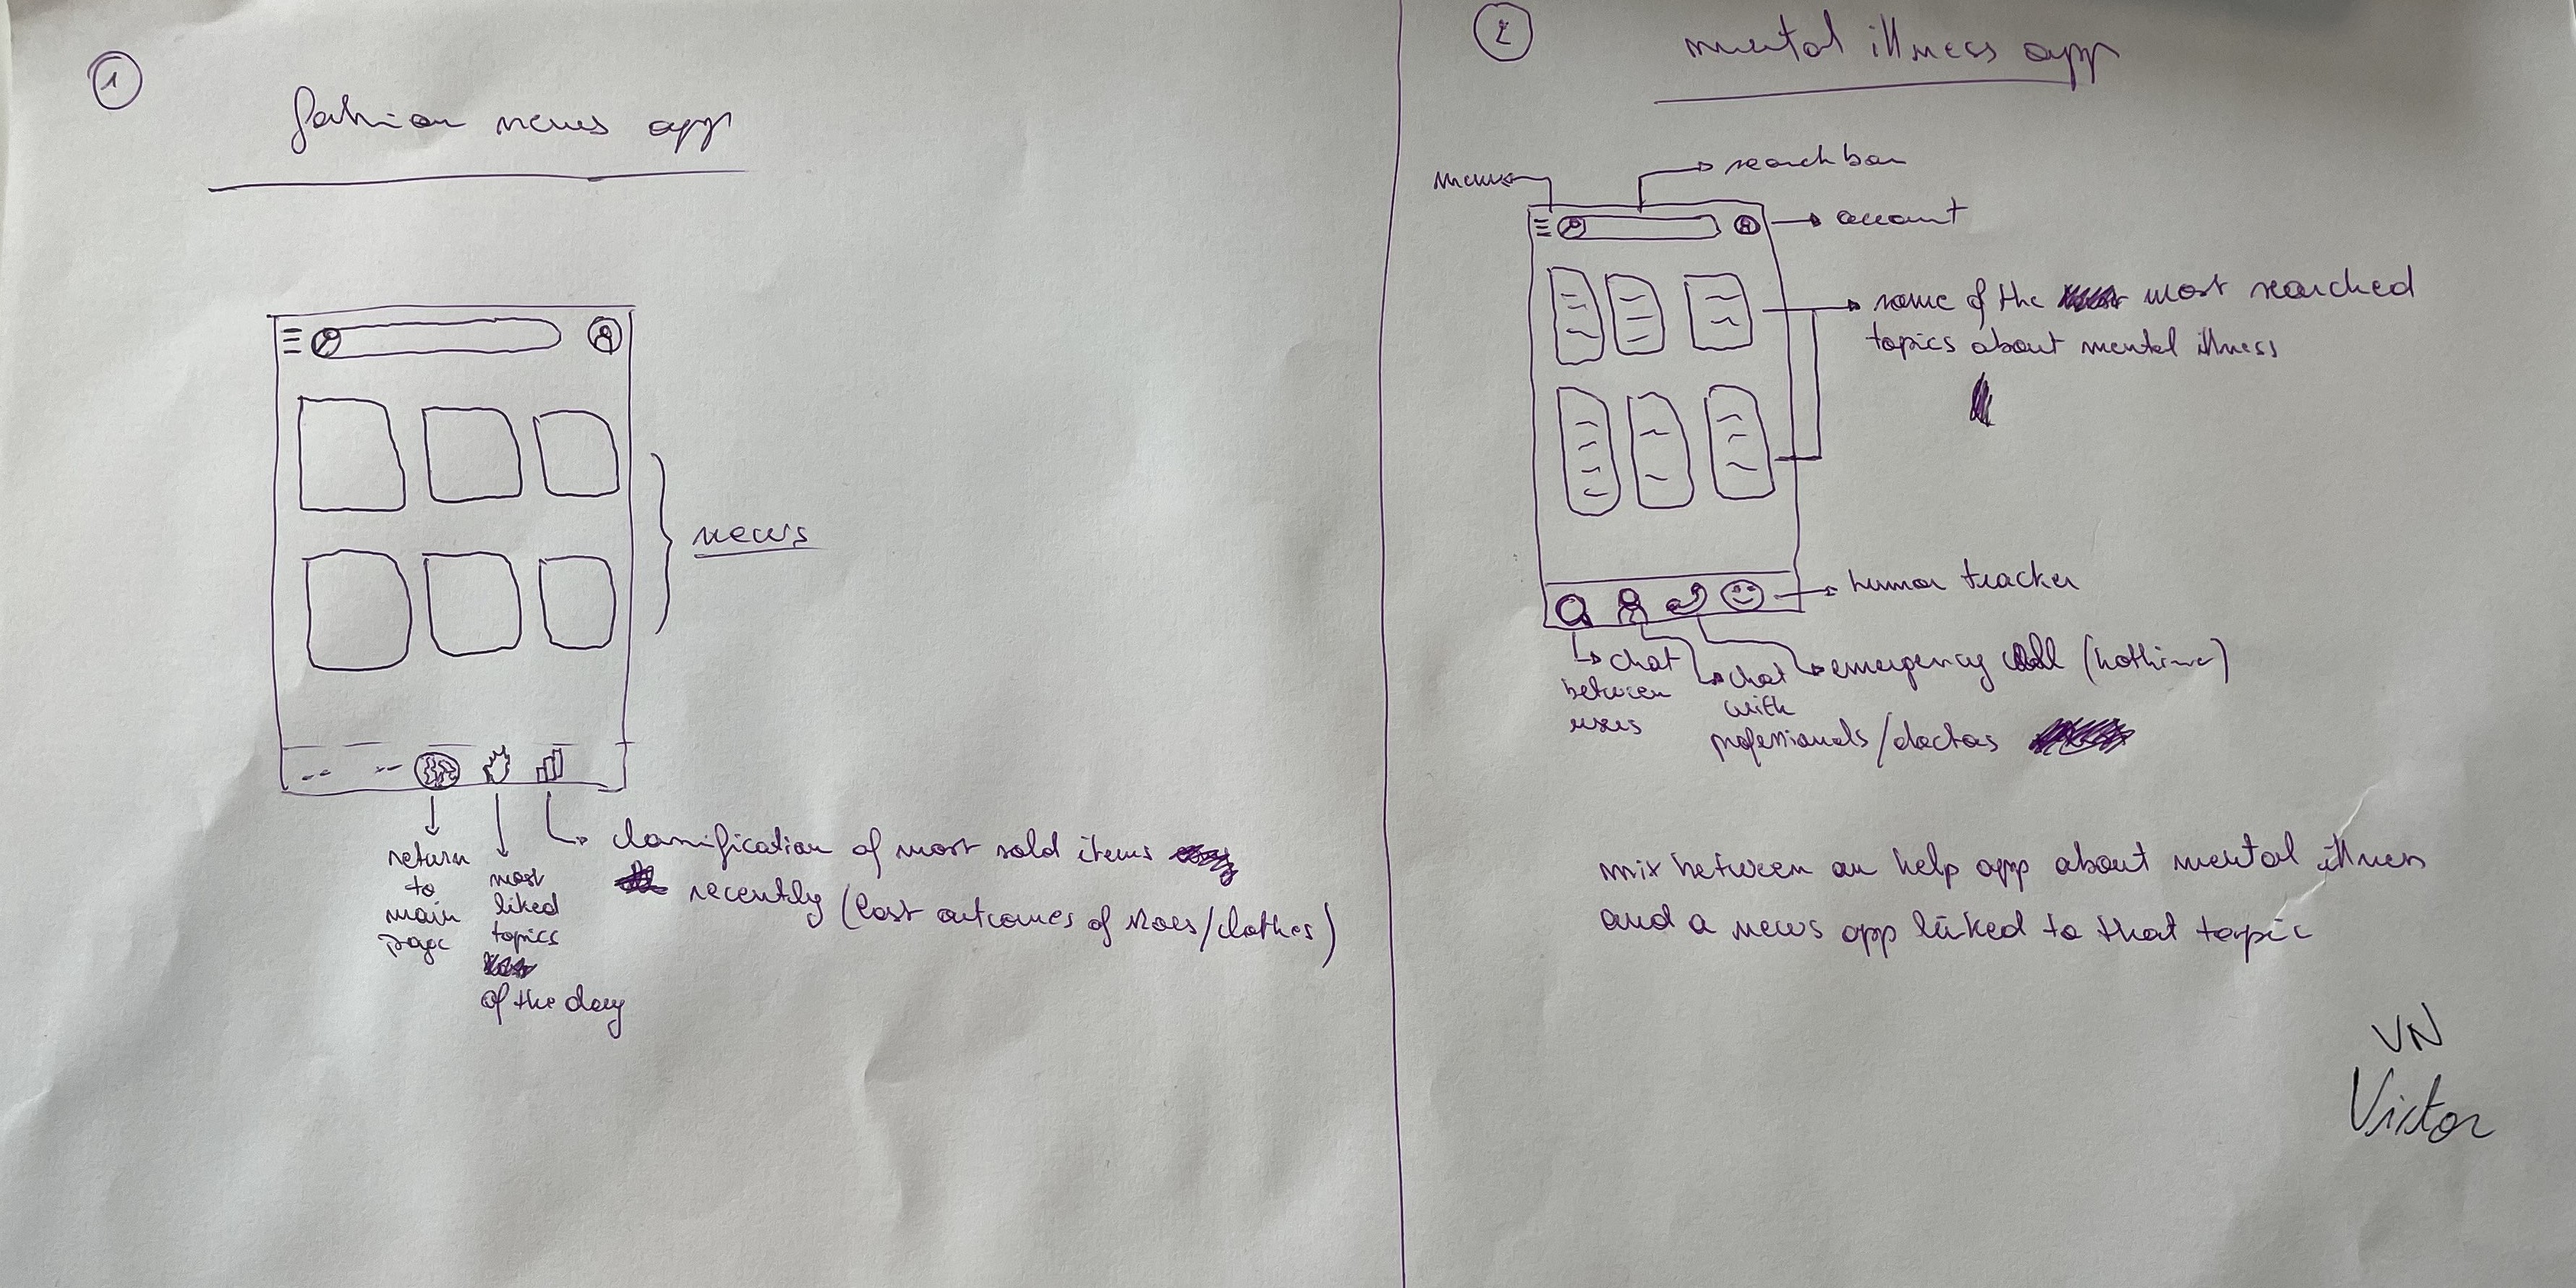 1
fashion news app
news
return
to
main
page
most
liked
topics
of the day
classification of most sold items
recently (last outcomes of shoes/clothes)
2
mental illness app
menu
search bar
account
some of the most searched
topics about mental illness
humor tracker
chat
between
users
chat
with
professionals/doctors
emergency call (hotline)
mix between an help app about mental illness
and a news app linked to that topic
VN
Victor